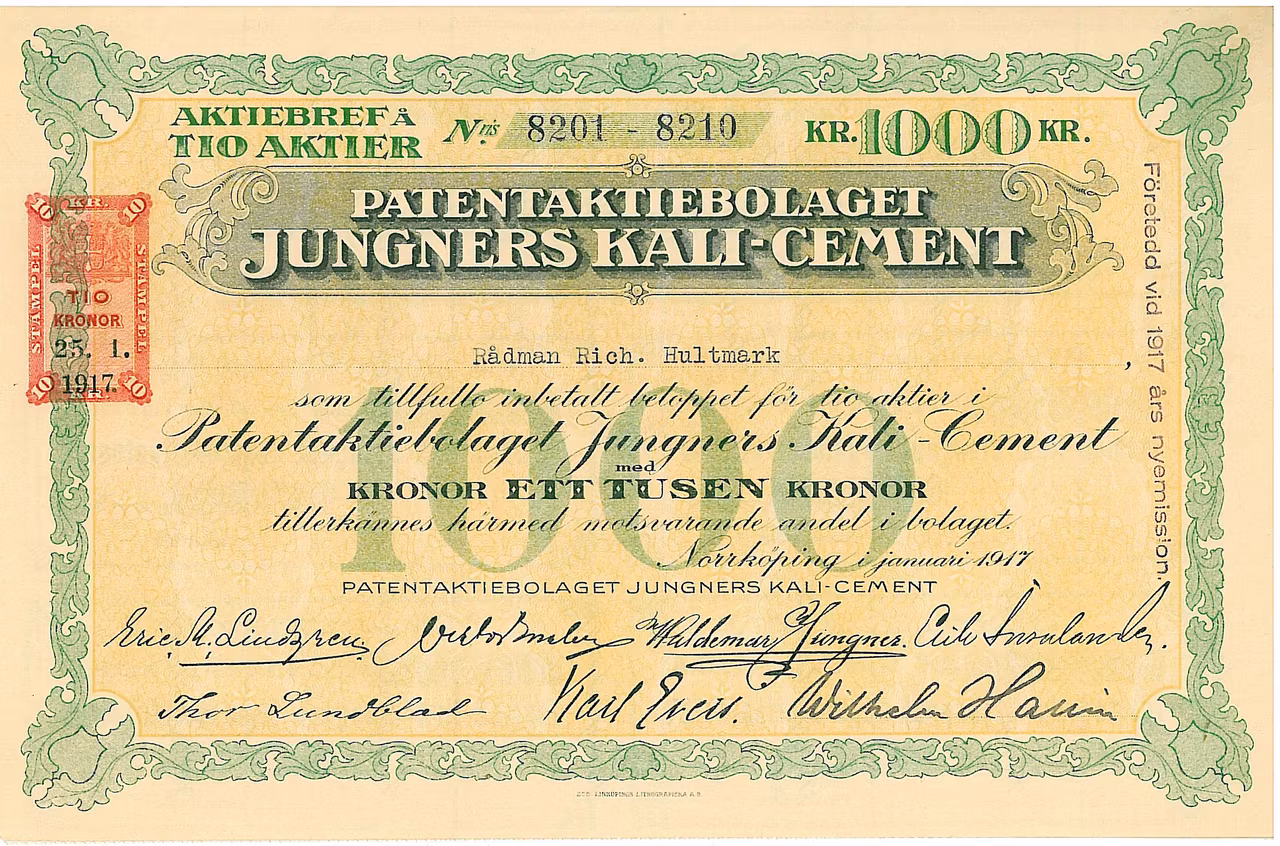 AKTIEBREF Å
TIO AKTIER
Nris 8201 - 8210
KR. 1000 KR.
PATENTAKTIEBOLAGET
JUNGNERS KALI-CEMENT
10 KR. 10
STÄMPEL
STÄMPEL
TIO
KRONOR
25. 1.
1917.
10 KR. 10
Företedd vid 1917 års nyemission.
Rådman Rich. Hultmark,
1000
som tillfullo inbetalt beloppet för tio aktier i
Patentaktiebolaget Jungners Kali-Cement
med
KRONOR ETT TUSEN KRONOR
tillerkännes härmed motsvarande andel i bolaget.
Norrköping i januari 1917
PATENTAKTIEBOLAGET JUNGNERS KALI-CEMENT
Eric M. Lindgren. Waldemar Jungner. Erik
Thor Lundblad Karl Wilhelm
LINKÖPINGS LITOGRAFISKA A.B.